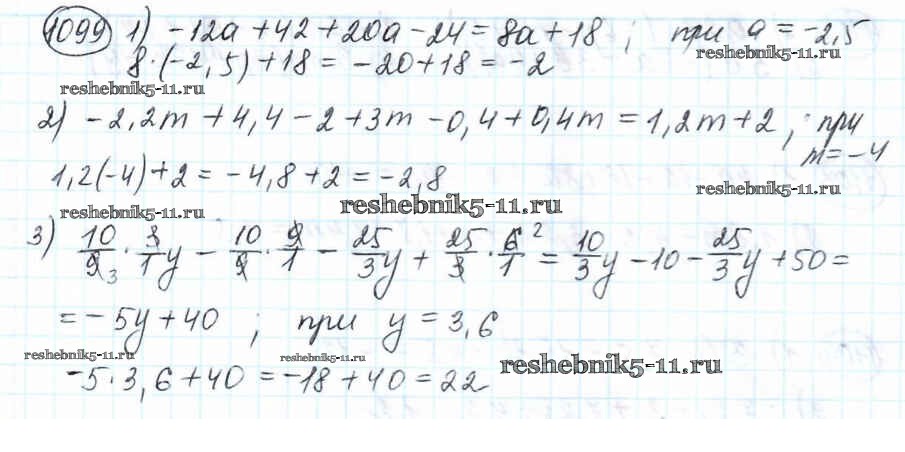 1099 1) -12a + 42 + 20a - 24 = 8a + 18 ; при a = -2,5
reshebnik5-11.ru
8·(-2,5) + 18 = -20 + 18 = -2
reshebnik5-11.ru
2) -2,2m + 4,4 - 2 + 3m - 0,4 + 0,4m = 1,2m + 2 , при
m = -4
1,2(-4) + 2 = -4,8 + 2 = -2,8
reshebnik5-11.ru
reshebnik5-11.ru
reshebnik5-11.ru
3) 10/9₃ · 3/1 y - 10/9 · 9/1 - 25/3 y + 25/3 · 6²/1 = 10/3 y - 10 - 25/3 y + 50 =
= -5y + 40 ; при y = 3,6
reshebnik5-11.ru
reshebnik5-11.ru
reshebnik5-11.ru
-5·3,6 + 40 = -18 + 40 = 22